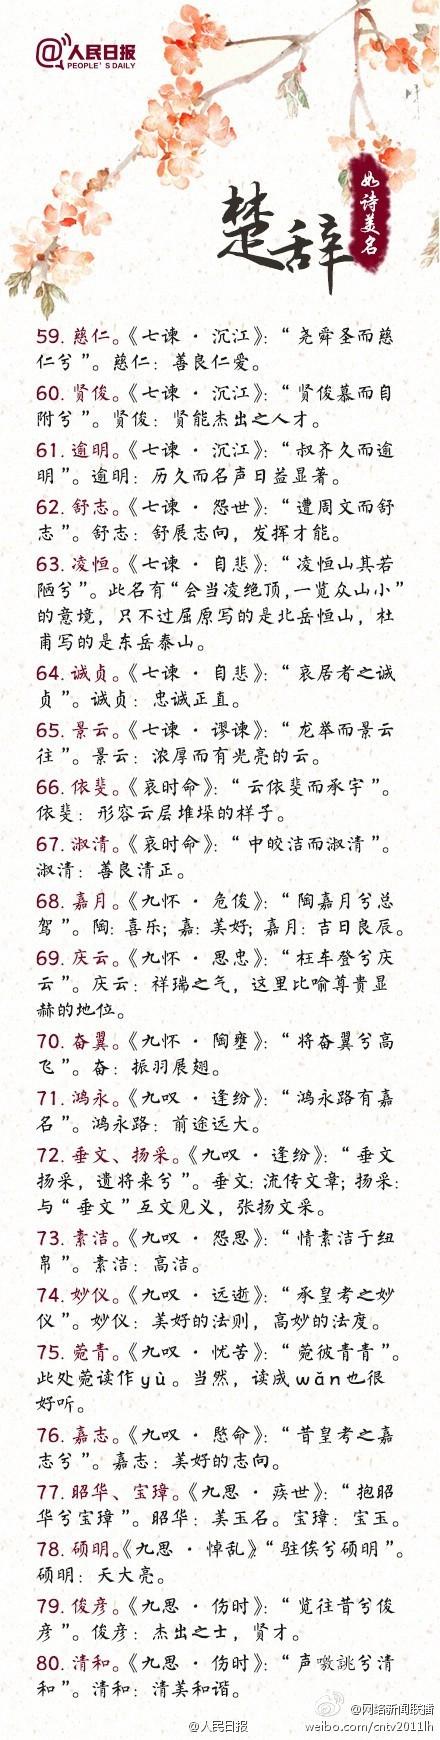 @人民日报
PEOPLE'S DAILY
楚辞
如诗美名
59. 慈仁。《七谏 · 沉江》：“尧舜圣而慈
仁兮”。慈仁：善良仁爱。
60. 贤俊。《七谏 · 沉江》：“贤俊慕而自
附兮”。贤俊：贤能杰出之人才。
61. 逾明。《七谏 · 沉江》：“叔齐久而逾
明”。逾明：历久而名声日益显著。
62. 舒志。《七谏 · 怨世》：“遭周文而舒
志”。舒志：舒展志向，发挥才能。
63. 凌恒。《七谏 · 自悲》：“凌恒山其若
陋兮”。此名有“会当凌绝顶，一览众山小”
的意境，只不过屈原写的是北岳恒山，杜
甫写的是东岳泰山。
64. 诚贞。《七谏 · 自悲》：“哀居者之诚
贞”。诚贞：忠诚正直。
65. 景云。《七谏 · 谬谏》：“龙举而景云
往”。景云：浓厚而有光亮的云。
66. 依斐。《哀时命》：“云依斐而承宇”。
依斐：形容云层堆垛的样子。
67. 淑清。《哀时命》：“中皎洁而淑清”。
淑清：善良清正。
68. 嘉月。《九怀 · 危俊》：“陶嘉月兮总
驾”。陶：喜乐；嘉：美好；嘉月：吉日良辰。
69. 庆云。《九怀 · 思忠》：“枉车登兮庆
云”。庆云：祥瑞之气，这里比喻尊贵显
赫的地位。
70. 奋翼。《九怀 · 陶壅》：“将奋翼兮高
飞”。奋：振羽展翅。
71. 鸿永。《九叹 · 逢纷》：“鸿永路有嘉
名”。鸿永路：前途远大。
72. 垂文、扬采。《九叹 · 逢纷》：“垂文
扬采，遗将来兮”。垂文：流传文章；扬采：
与“垂文”互文见义，张扬文采。
73. 素洁。《九叹 · 怨思》：“情素洁于纽
帛”。素洁：高洁。
74. 妙仪。《九叹 · 远逝》：“承皇考之妙
仪”。妙仪：美好的法则，高妙的法度。
75. 菀青。《九叹 · 忧苦》：“菀彼青青”。
此处菀读作yù。当然，读成wǎn也很
好听。
76. 嘉志。《九叹 · 愍命》：“昔皇考之嘉
志兮”。嘉志：美好的志向。
77. 昭华、宝璋。《九思 · 疾世》：“抱昭
华兮宝璋”。昭华：美玉名。宝璋：宝玉。
78. 硕明。《九思 · 悼乱》“驻俟兮硕明”。
硕明：天大亮。
79. 俊彦。《九思 · 伤时》：“览往昔兮俊
彦”。俊彦：杰出之士，贤才。
80. 清和。《九思 · 伤时》：“声噭誂兮清
和”。清和：清美和谐。
@人民日报
@网络新闻联播
weibo.com/cntv2011lh